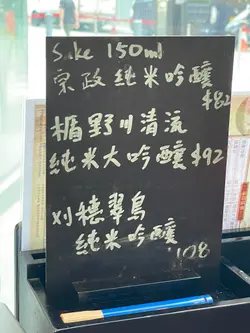 Sake 150ml
宗政 純米吟釀
$82
楯野川清流
純米大吟釀 $92
刈穗翠鳥
純米吟釀
108